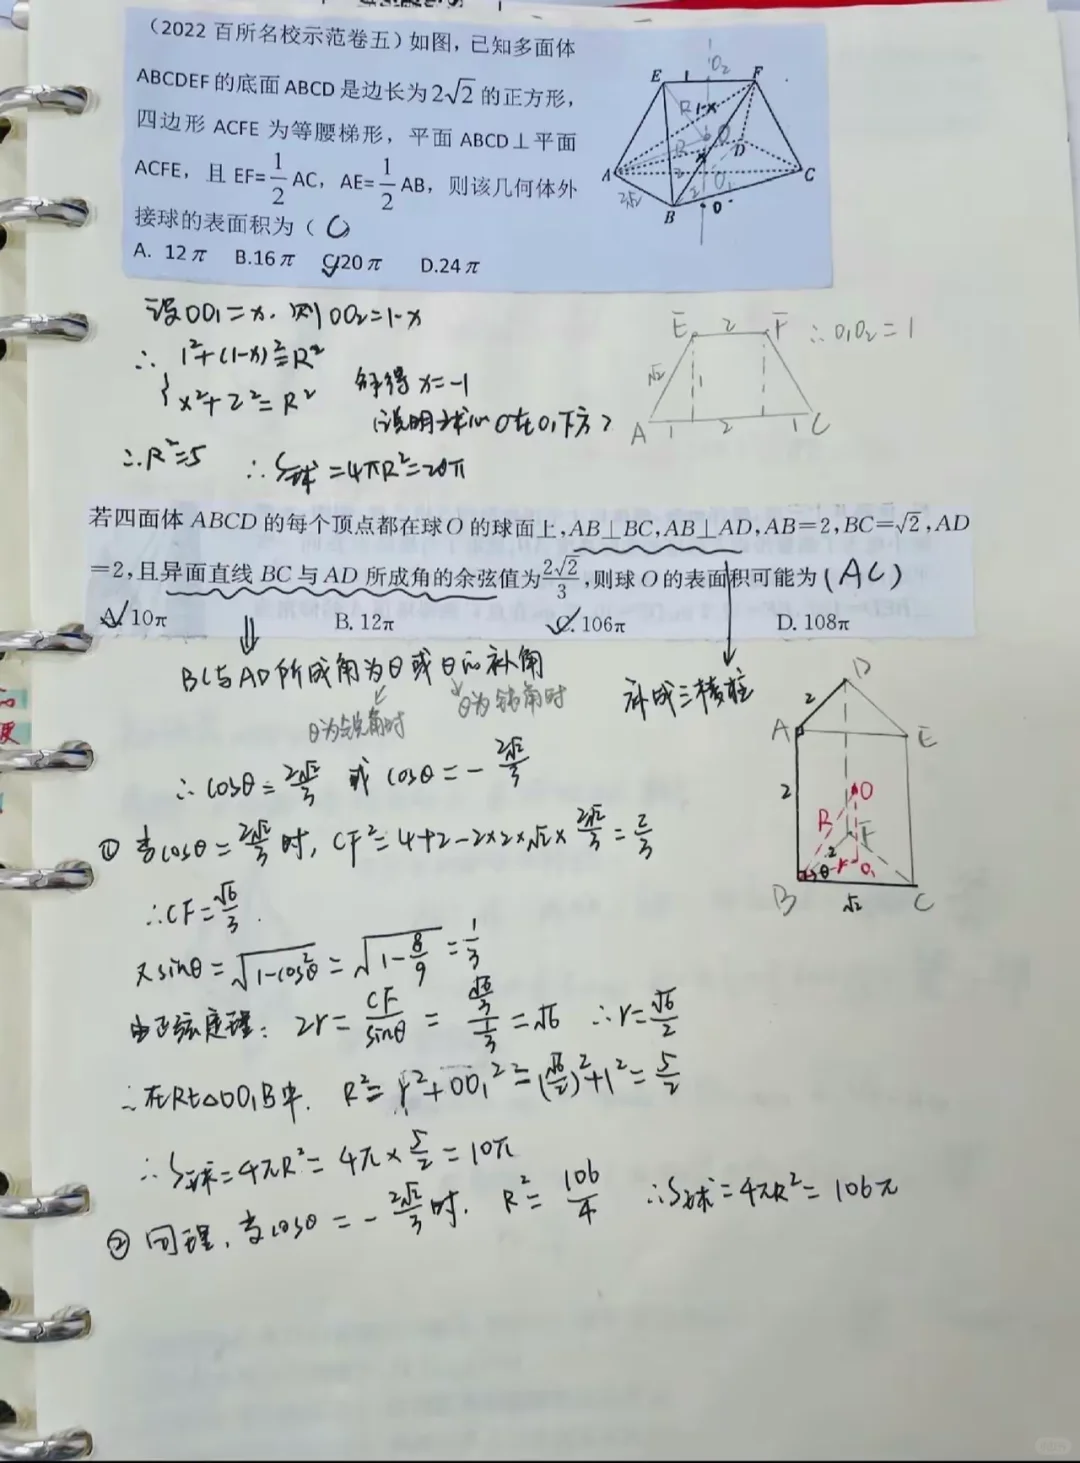 （2022 百所名校示范卷五）如图，已知多面体
ABCDEF 的底面 ABCD 是边长为 2√2 的正方形，
四边形 ACFE 为等腰梯形，平面 ABCD⊥平面
ACFE，且 EF=1/2 AC，AE=1/2 AB，则该几何体外
接球的表面积为（ C ）
A. 12π B.16π C.20π D.24π
E 1 F O₂
R 1-x O
A R x D C
2√2 2 2 O₁
B O
设OO₁=x. 则OO₂=1-x
∴ 1²+(1-x)²=R²
x²+2²=R²
解得 x=-1
(说明球心O在O₁下方)
∴R²=5 ∴S球=4πR²=20π
E 2 F ∴O₁O₂=1
√2 1
A 1 2 1 C
若四面体 ABCD 的每个顶点都在球 O 的球面上,AB⊥BC,AB⊥AD,AB=2,BC=√2,AD
=2,且异面直线 BC 与 AD 所成角的余弦值为2√2/3,则球 O 的表面积可能为(AC)
A. 10π B. 12π C. 106π D. 108π
BC与AD所成角为θ或θ的补角
θ为锐角时 θ为钝角时
补成三棱柱
∴cosθ=2√2/3 或 cosθ=-2√2/3
D
2
A E
2 O
R F
2
B θ r O₁ C
√2
① 当cosθ=2√2/3时, CF²=4+2-2×2×√2×2√2/3=2/3
∴CF=√6/3.
又sinθ=√(1-cos²θ)=√(1-8/9)=1/3
由正弦定理: 2r=CF/sinθ=(√6/3)/(1/3)=√6 ∴r=√6/2
∴在Rt△OO₁B中. R²=r²+OO₁²=(√6/2)²+1²=5/2
∴S球=4πR²=4π×5/2=10π
② 同理, 当cosθ=-2√2/3时. R²=106/4 ∴S球=4πR²=106π